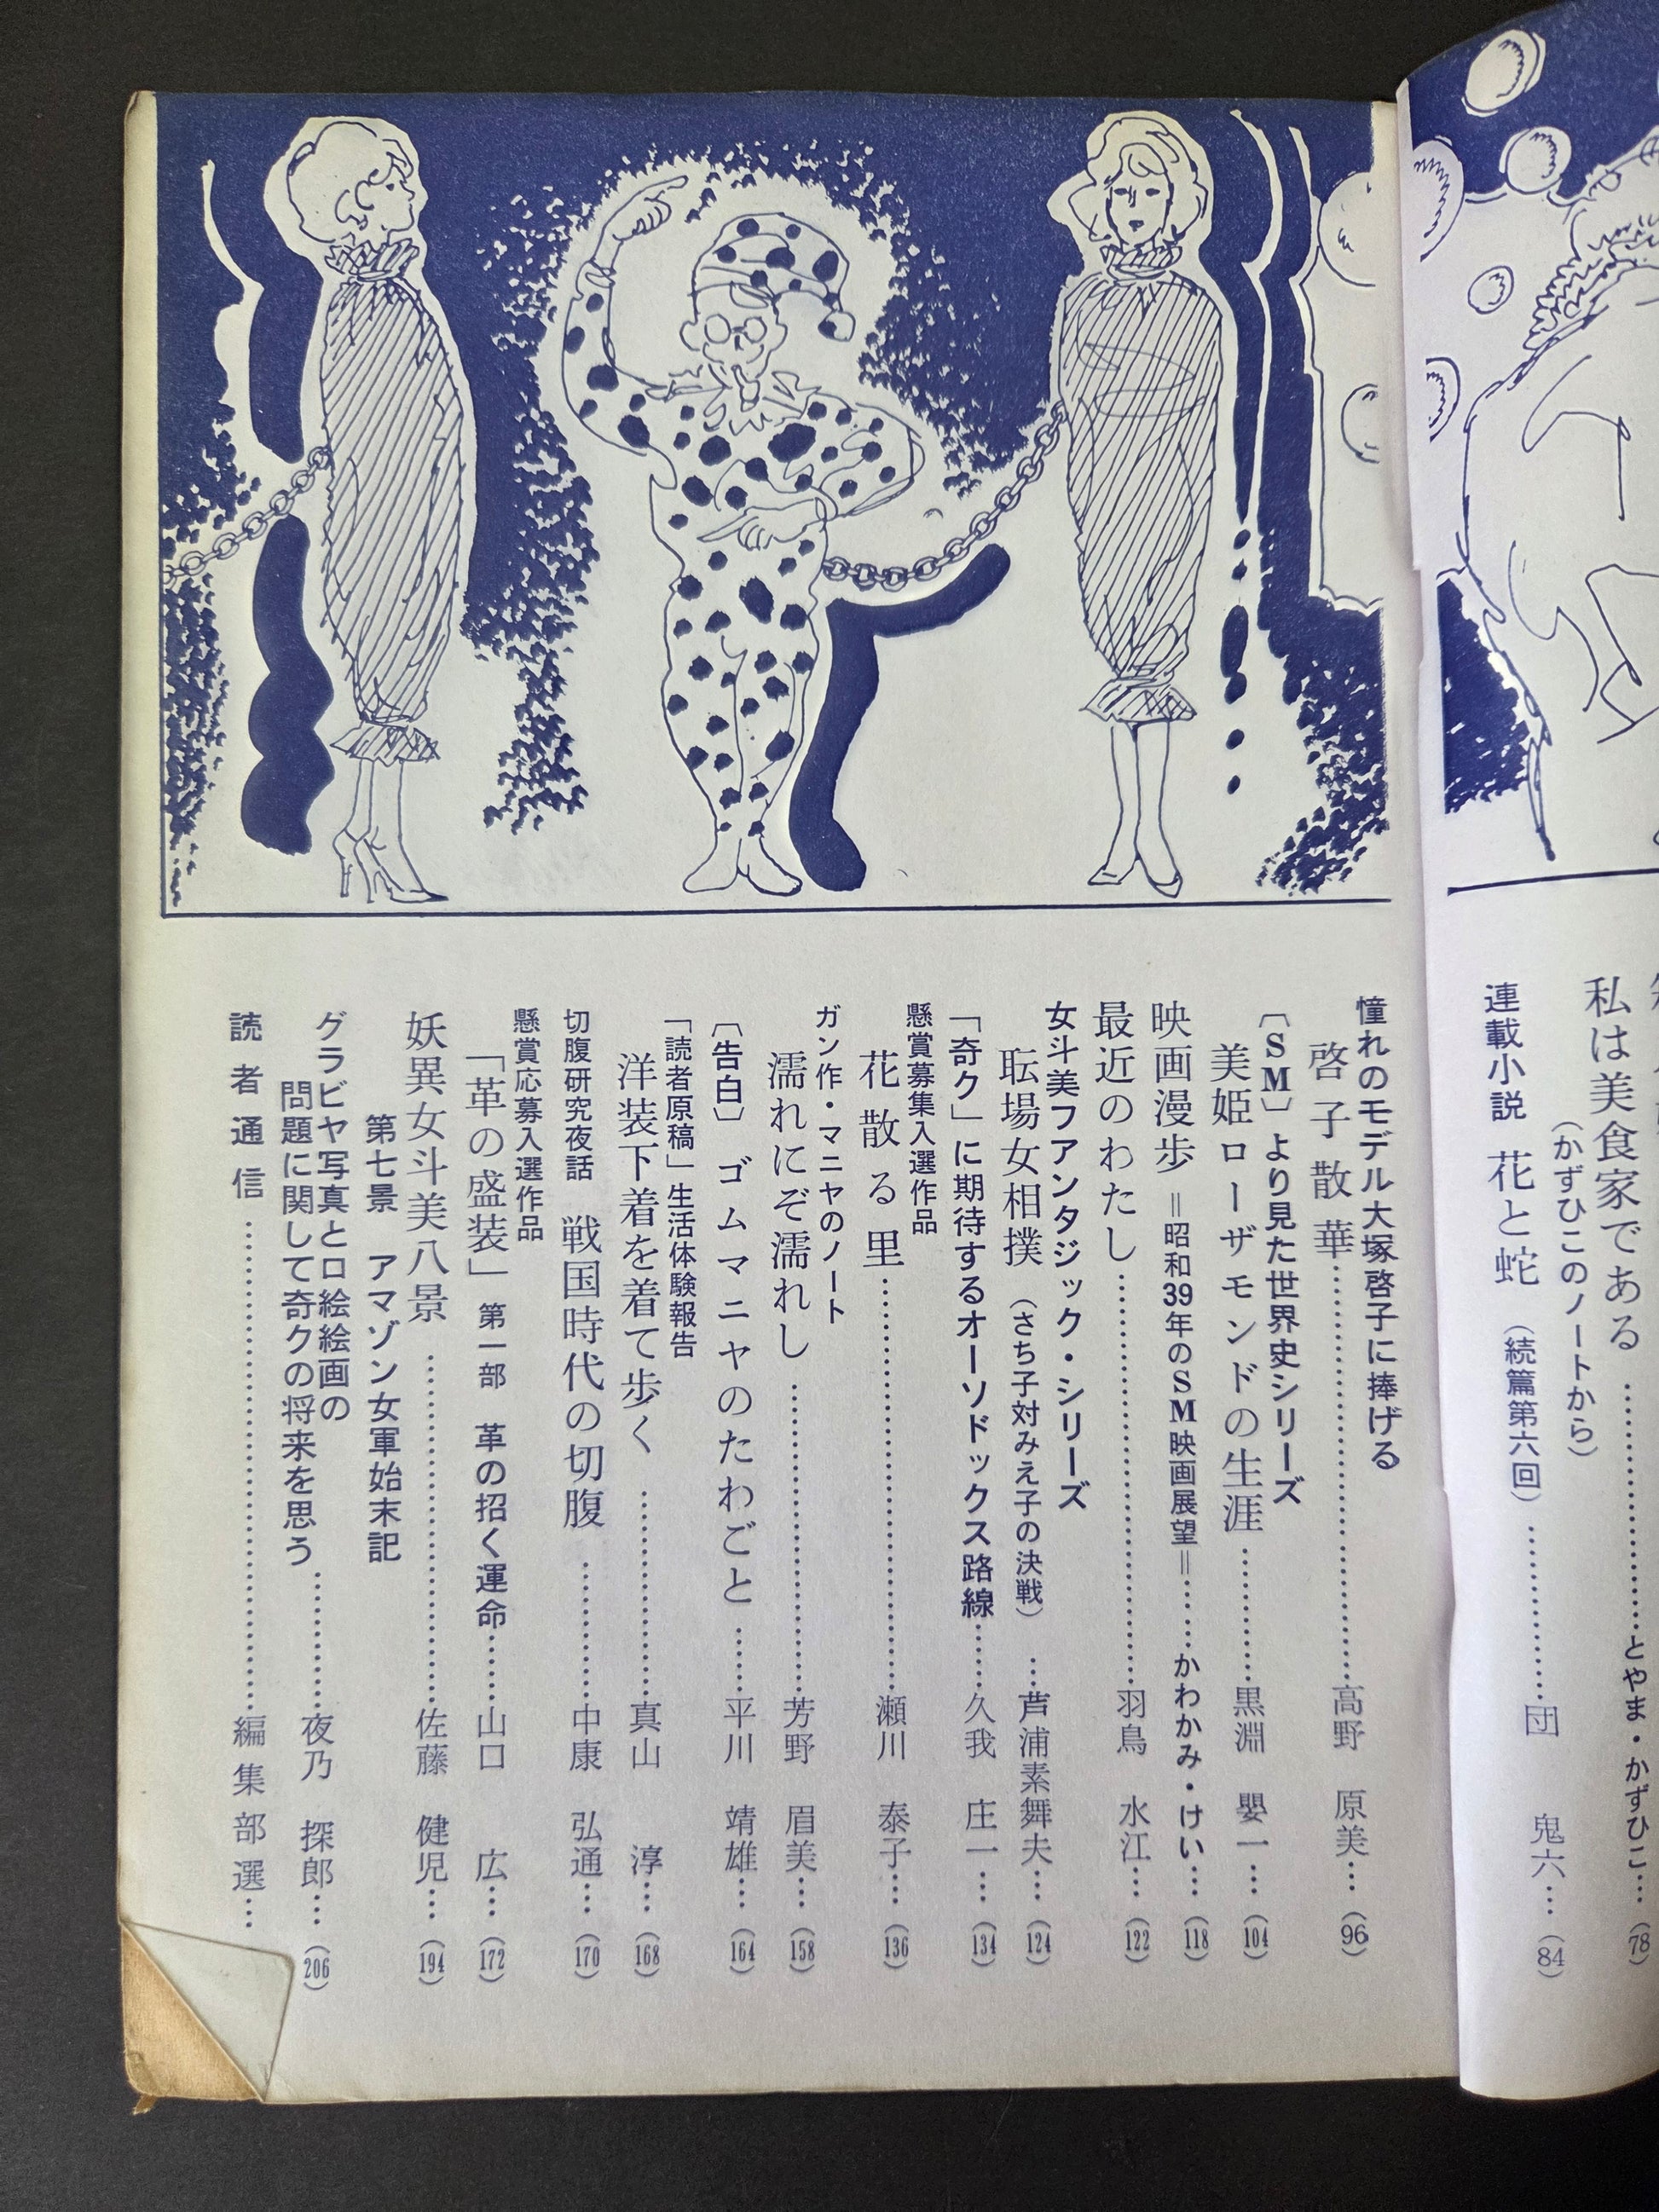 私は美食家である……………………とやま・かずひこ…(78)
(かずひこのノートから)
連載小説 花と蛇 (続篇第六回)……………団 鬼六…(84)
憧れのモデル大塚啓子に捧げる
啓子散華……………………高野 原美…(96)
〔SM〕より見た世界史シリーズ
美姫ローザモンドの生涯…………黒淵 嬰一…(104)
映画漫歩 ＝昭和39年のSM映画展望＝………かわかみ・けい…(118)
最近のわたし……………………羽鳥 水江…(122)
女斗美フアンタジック・シリーズ
耘場女相撲 (さち子対みえ子の決戦)…芦浦素舞夫…(124)
「奇ク」に期待するオーソドックス路線……久我 庄一…(134)
懸賞募集入選作品
花散る里……………………瀬川 泰子…(136)
ガン作・マニヤのノート
濡れにぞ濡れし……………………芳野 眉美…(158)
〔告白〕ゴムマニヤのたわごと……平川 靖雄…(164)
「読者原稿」生活体験報告
洋装下着を着て歩く……………真山 淳…(168)
切腹研究夜話 戦国時代の切腹…………中康 弘通…(170)
懸賞応募入選作品
「革の盛装」第一部 革の招く運命……山口 広…(172)
妖異女斗美八景……………………佐藤 健児…(194)
第七景 アマゾン女軍始末記
グラビヤ写真と口絵絵画の
問題に関して奇クの将来を思う…………夜乃 探郎…(206)
読者通信……………………編集部選…